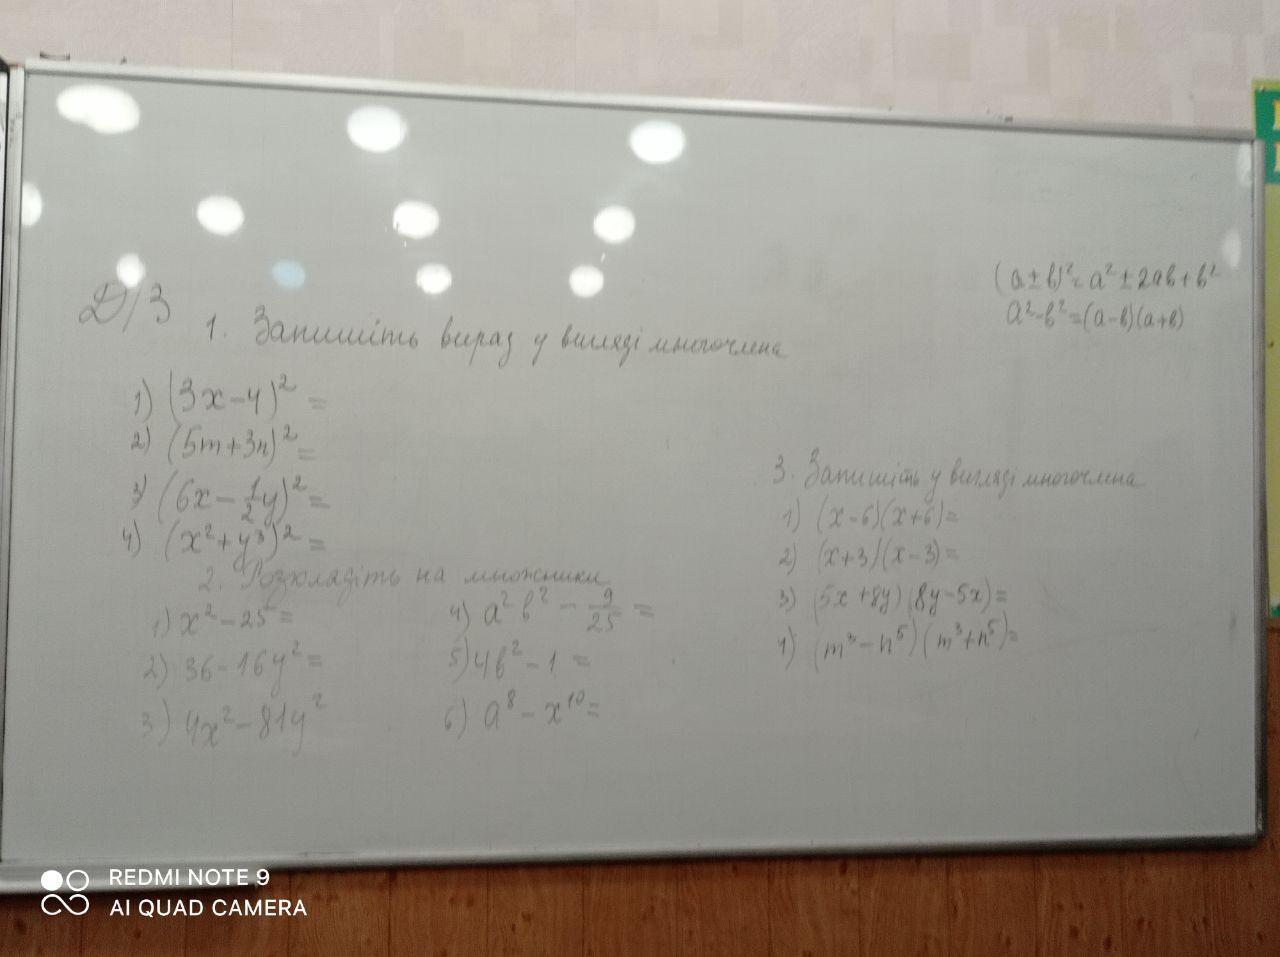 (a ± b)² = a² ± 2ab + b²
a² - b² = (a - b)(a + b)
Д/З
1. Запишіть вираз у вигляді многочлена
1) (3x - 4)² =
2) (5m + 3n)² =
3) (6x - 1/2 y)² =
4) (x² + y³)² =
2. Розкладіть на множники
1) x² - 25 =
2) 36 - 16y² =
3) 4x² - 81y²
4) a² b² - 9/25 =
5) 4b² - 1 =
6) a⁸ - x¹⁰ =
3. Запишіть у вигляді многочлена
1) (x - 6)(x + 6) =
2) (x + 3)(x - 3) =
3) (5x + 8y)(8y - 5x) =
4) (m³ - n⁵)(m³ + n⁵) =
REDMI NOTE 9
AI QUAD CAMERA